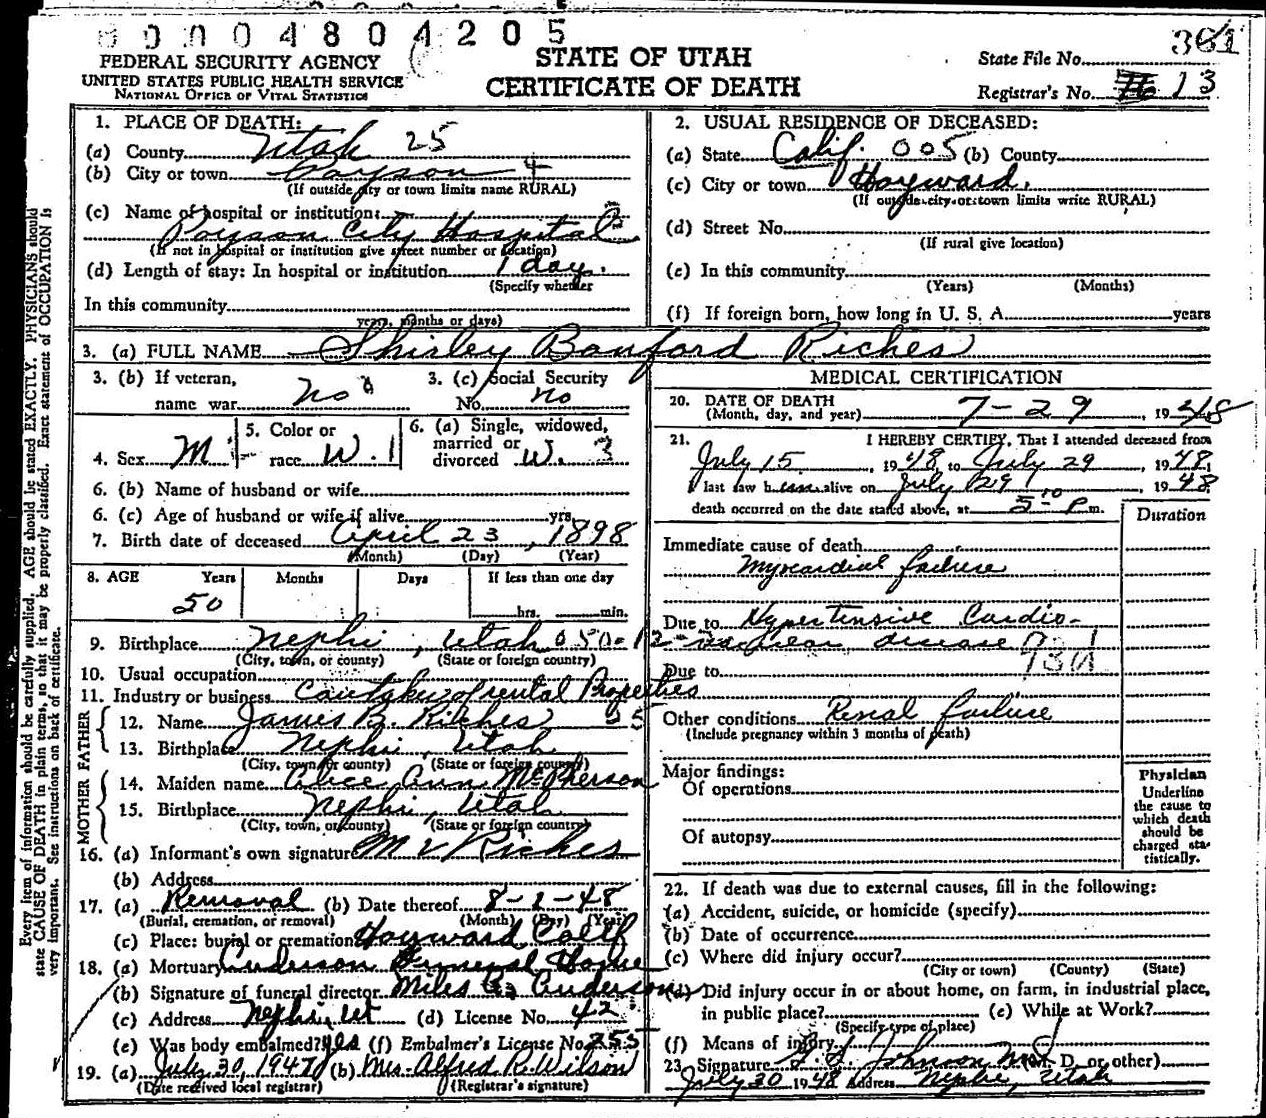 0 0 0 0 4 8 0 4 2 0 5
FEDERAL SECURITY AGENCY
UNITED STATES PUBLIC HEALTH SERVICE
NATIONAL OFFICE OF VITAL STATISTICS
STATE OF UTAH
CERTIFICATE OF DEATH
State File No. 361
Registrar's No. 13
1. PLACE OF DEATH:
(a) County Utah 25
(b) City or town Payson 4
(If outside city or town limits name RURAL)
(c) Name of hospital or institution:
Payson City Hospital
(If not in hospital or institution give street number or location)
(d) Length of stay: In hospital or institution 1 day.
(Specify whether
In this community
years, months or days)
2. USUAL RESIDENCE OF DECEASED:
(a) State Calif. 005 (b) County
(c) City or town Hayward.
(If outside city or town limits write RURAL)
(d) Street No.
(If rural give location)
(e) In this community
(Years) (Months)
(f) If foreign born, how long in U. S. A. years
3. (a) FULL NAME Shirley Banford Riches
3. (b) If veteran,
name war no
3. (c) Social Security
No. no
4. Sex M
5. Color or
race W. 1
6. (a) Single, widowed,
married or
divorced W. 3
6. (b) Name of husband or wife
6. (c) Age of husband or wife if alive yrs.
7. Birth date of deceased April 23, 1898
(Month) (Day) (Year)
8. AGE Years Months Days If less than one day
50 hrs. min.
9. Birthplace Nephi, Utah 050-1
(City, town, or county) (State or foreign country)
10. Usual occupation
11. Industry or business Caretaker of rental Properties
FATHER
12. Name James B. Riches
13. Birthplace Nephi, Utah
(City, town or county) (State or foreign country)
MOTHER
14. Maiden name Alice Ann McPherson
15. Birthplace Nephi, Utah
(City, town, or county) (State or foreign country)
16. (a) Informant's own signature M V Riches
(b) Address
17. (a) Removal (b) Date thereof 8-1-48
(Burial, cremation, or removal) (Month) (Day) (Year)
(c) Place: burial or cremation Hayward Calif
18. (a) Mortuary Anderson Funeral Home
(b) Signature of funeral director Miles Anderson
(c) Address Nephi, Ut (d) License No. 42
(e) Was body embalmed? Yes (f) Embalmer's License No. 255
19. (a) July 30, 1947 (b) Mrs. Alfred R. Wilson
(Date received local registrar) (Registrar's signature)
MEDICAL CERTIFICATION
20. DATE OF DEATH
(Month, day, and year) 7-29, 1948
21. I HEREBY CERTIFY, That I attended deceased from
July 15, 1948, to July 29, 1948,
I last saw him alive on July 29, 1948
death occurred on the date stated above, at 5:10 P m.
Duration
Immediate cause of death
Myocardial failure
Due to Hypertensive Cardio-
vascular disease
Due to 93d
Other conditions Renal failure
(Include pregnancy within 3 months of death)
Major findings:
Of operations
Of autopsy
Physician
Underline
the cause to
which death
should be
charged sta-
tistically.
22. If death was due to external causes, fill in the following:
(a) Accident, suicide, or homicide (specify)
(b) Date of occurrence
(c) Where did injury occur?
(City or town) (County) (State)
(d) Did injury occur in or about home, on farm, in industrial place,
in public place? (e) While at Work?
(Specify type of place)
(f) Means of injury
23. Signature Johnson M.D. (M. D. or other)
July 30 1948 Address Nephi, Utah
Every item of information should be carefully supplied. AGE should be stated EXACTLY. PHYSICIANS should
state CAUSE OF DEATH in plain terms, so that it may be properly classified. Exact statement of OCCUPATION is
very important. See instructions on back of certificate.